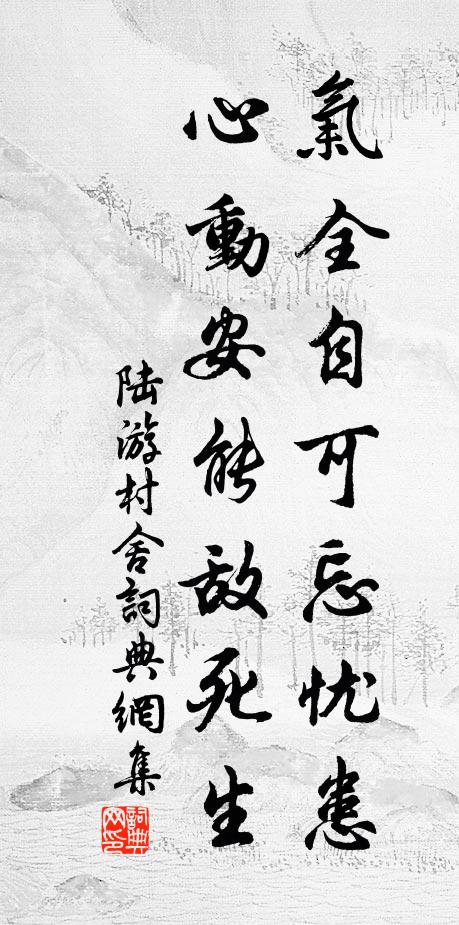 氣全自可忘忧患
心動安能敌死生
陆游村舍詞典網集
詞典
网印